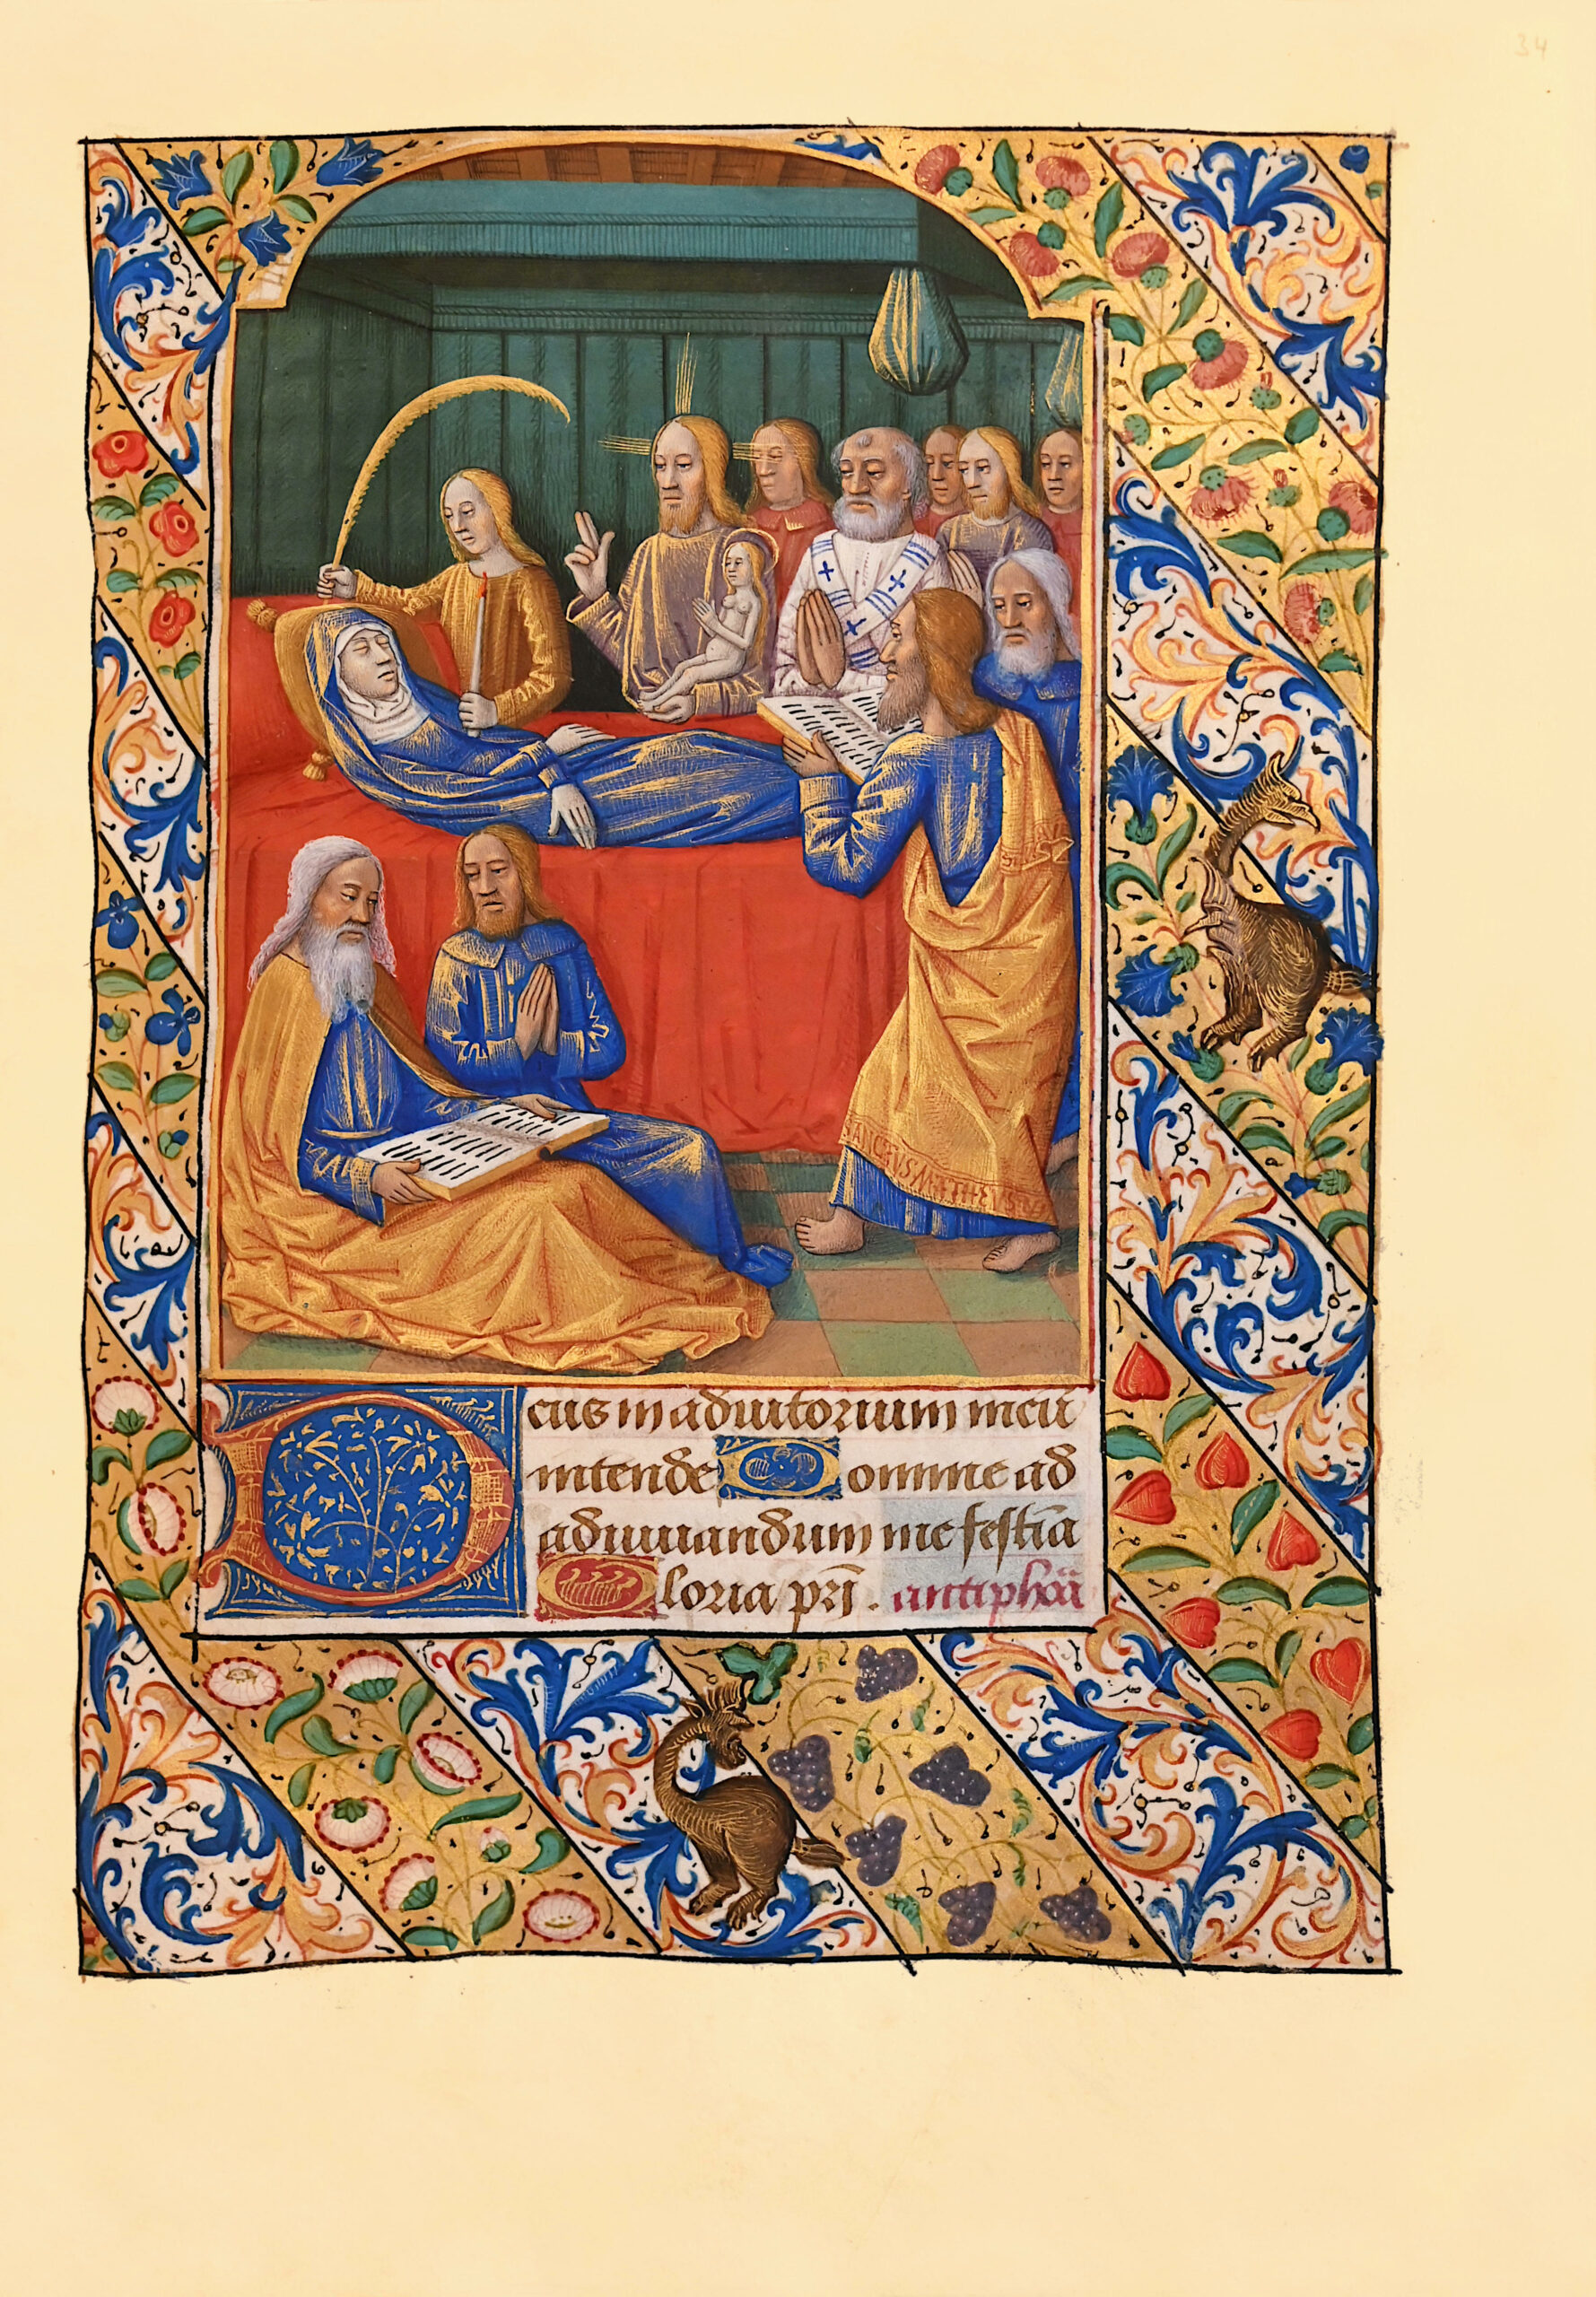 34
ANCTVS MATHEVS
Deus in adiutorium meū
intende Domine ad
adiuuandum me festīa
Gloria pr̄i . antiphōa